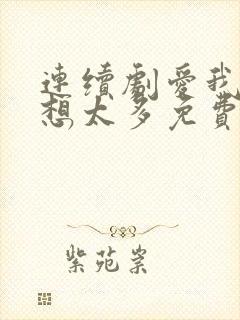 連續劇愛我
想太多免費
紫苑崇